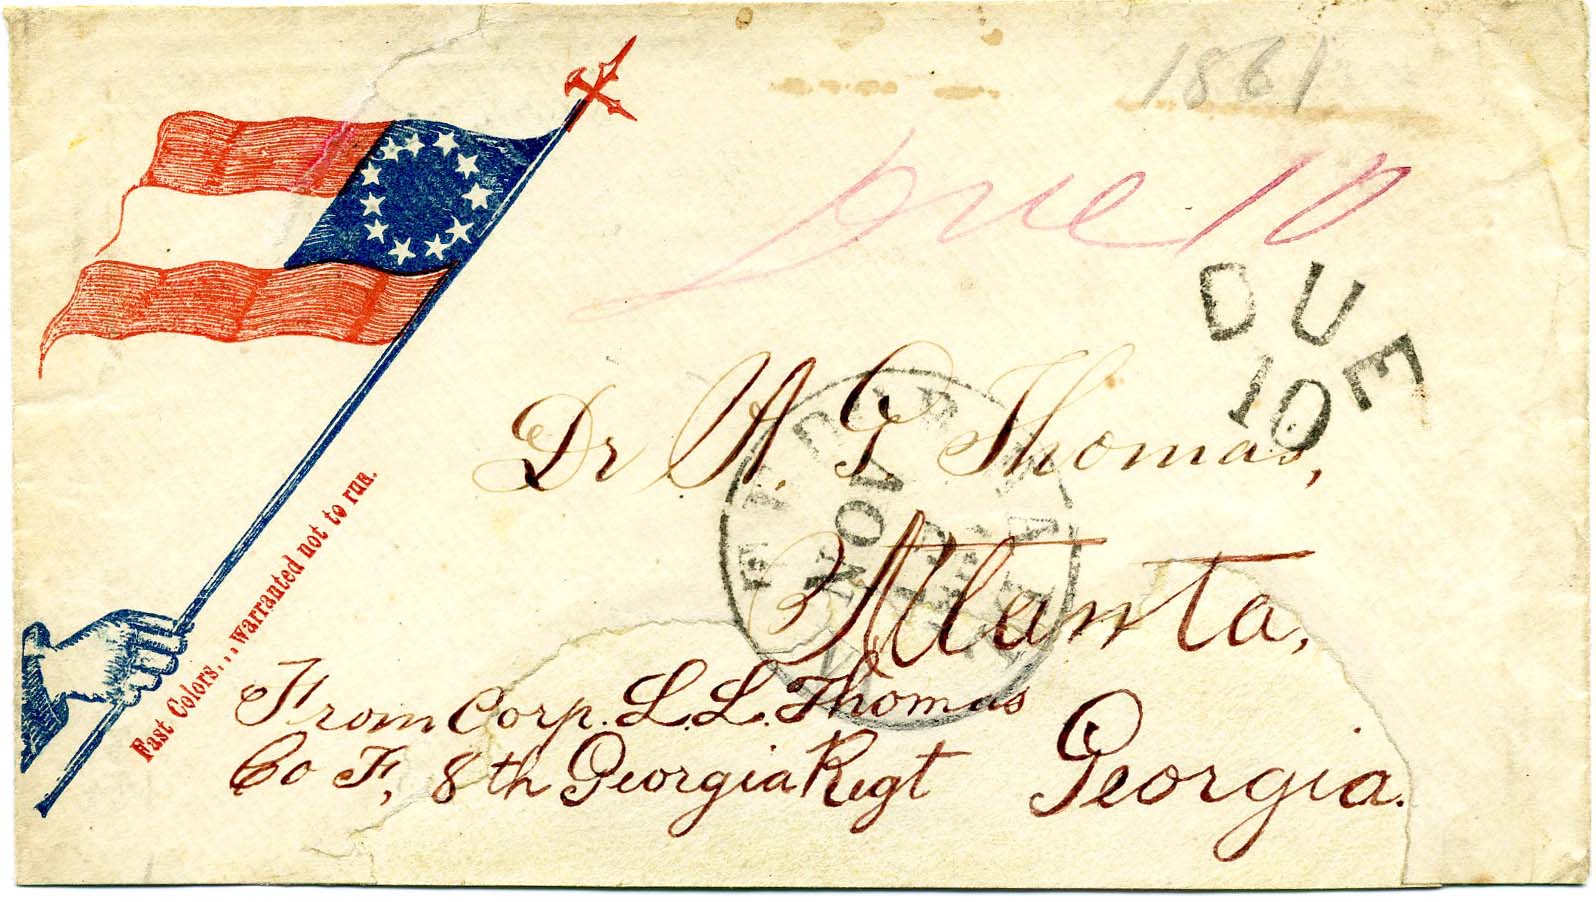 1861
Due 10
DUE
10
Dr W. G. Thomas,
NOV
Atlanta,
From Corp. L. L. Thomas
Co F, 8th Georgia Regt
Georgia.
Fast Colors...warranted not to run.